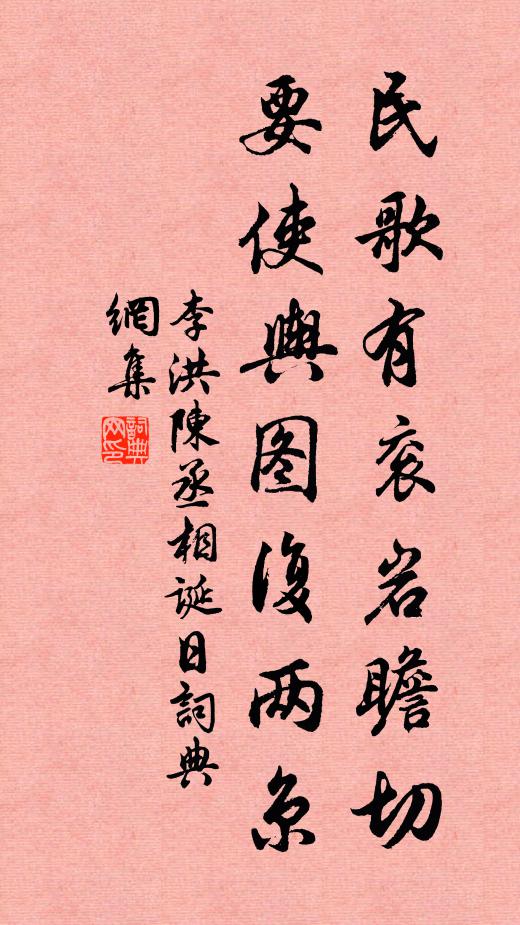 民歌有衮岩瞻切
要使舆图复两京
李洪陳丞相誕日詞典
網集
詞典
网印